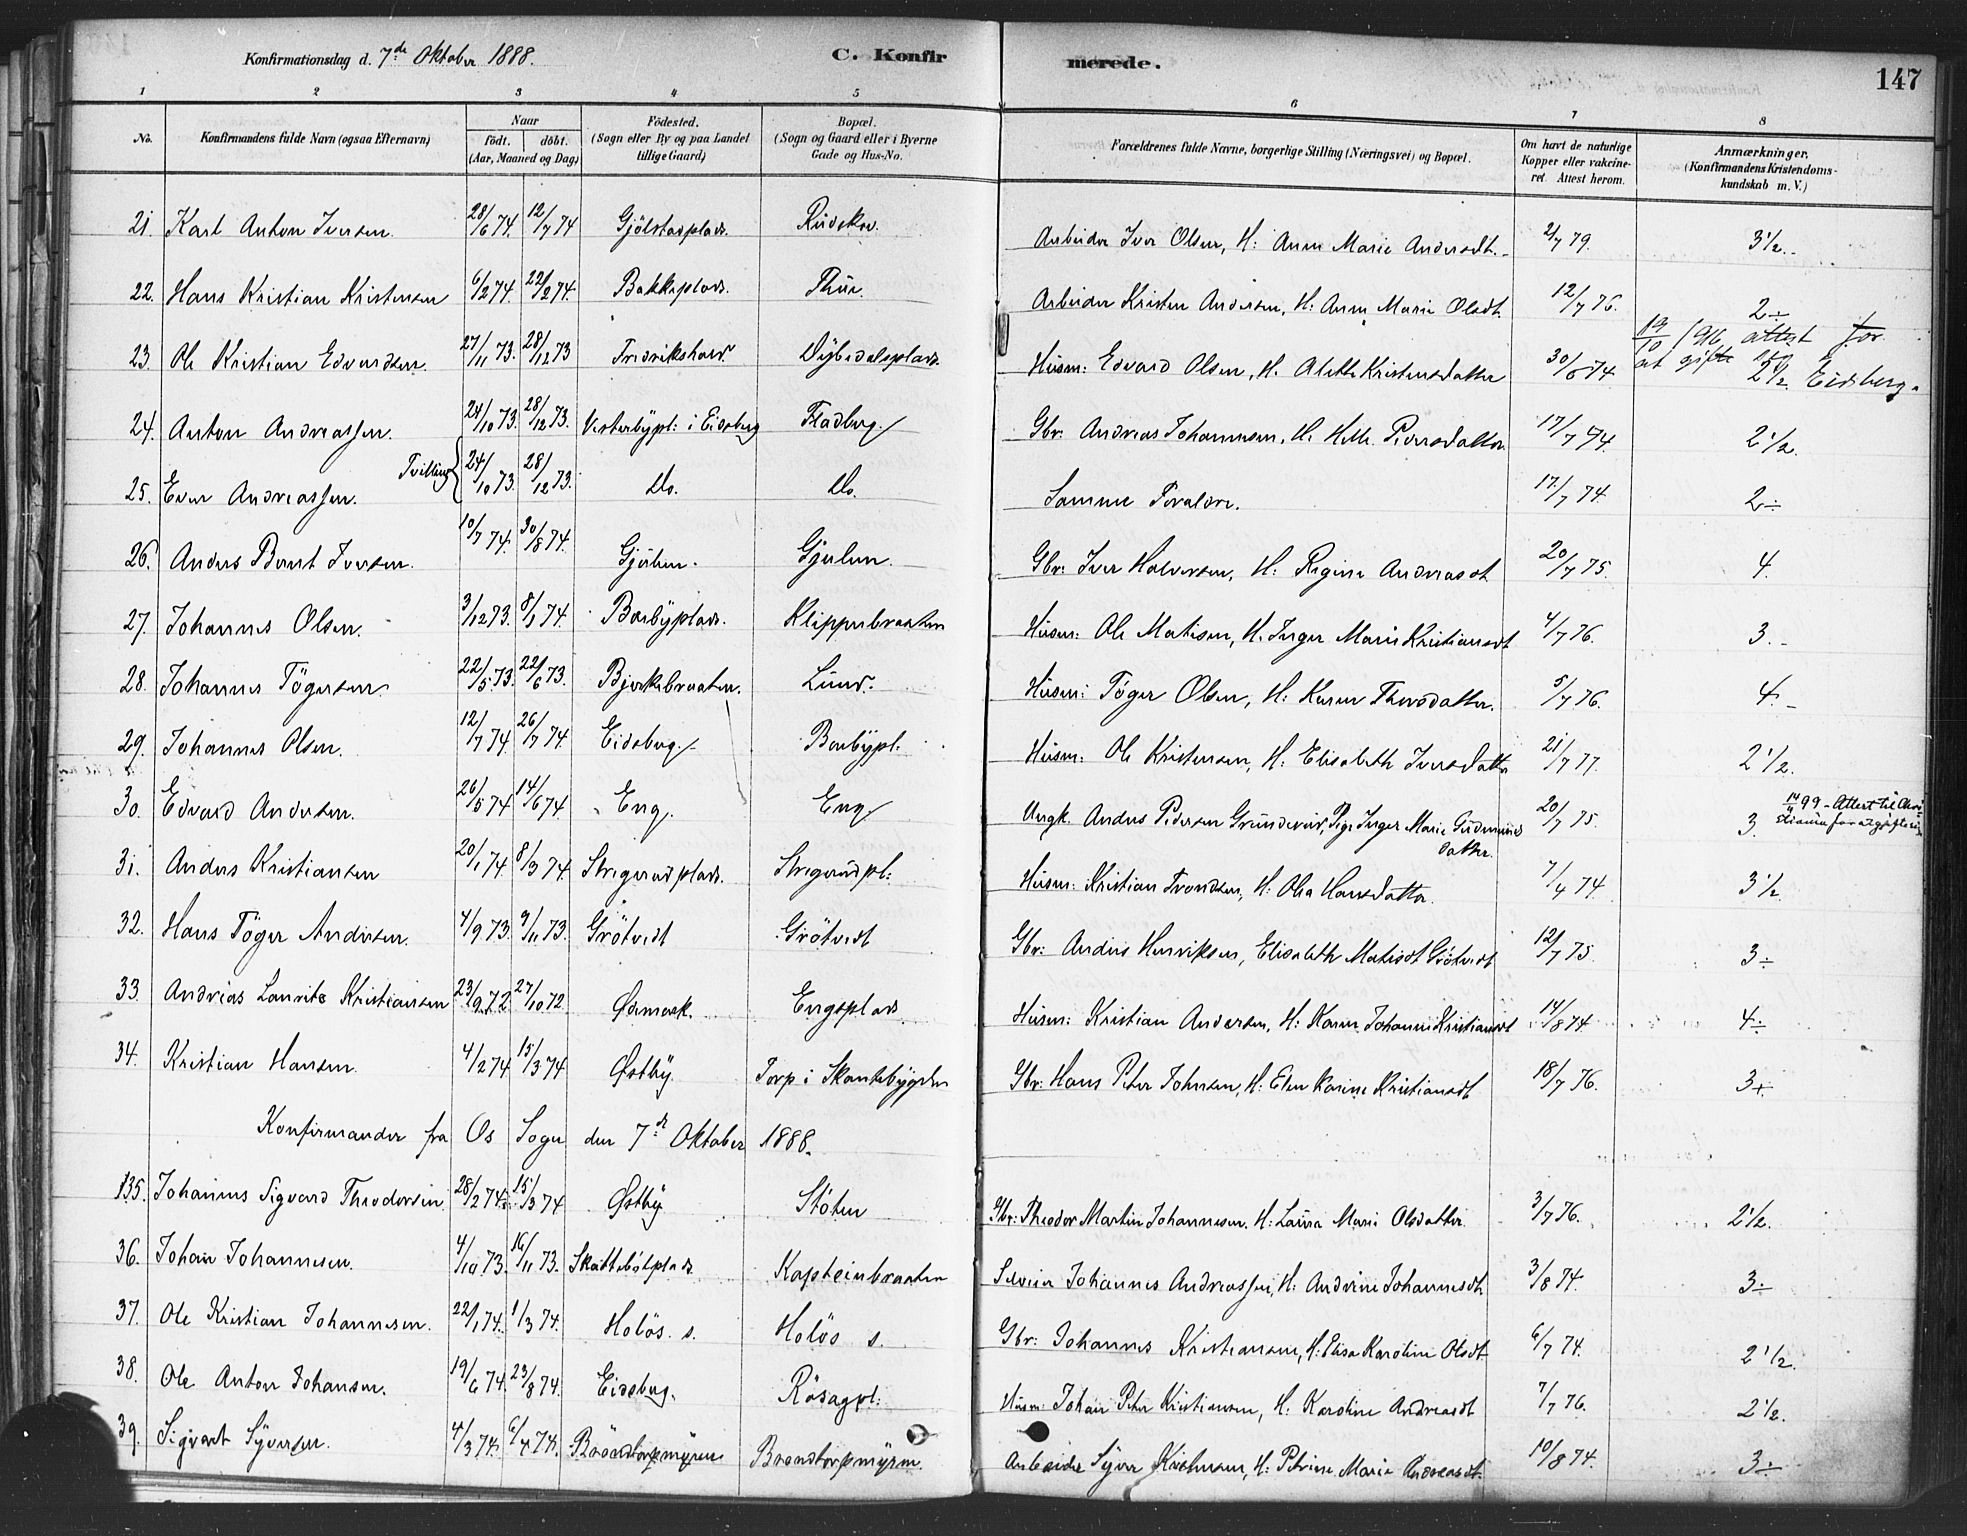 Konfirmationsdag d. 7de Oktober 1888. C. Konfirmerede. 147
1 2 3 4 5 6 7 8
No. Konfirmandens fulde Navn (ogsaa Efternavn) Naar födt. döbt. (Aar, Maaned og Dag) Födested. (Sogn eller By og paa Landet tillige Gaard) Bopæl. (Sogn og Gaard eller i Byerne Gade og Hus-No. Forældrenes fulde Navne, borgerlige Stilling (Næringsvei) og Bopæl. Om havt de naturlige Kopper eller vakcineret. Attest herom. Anmærkninger, (Konfirmandens Kristendomskundskab m. V.)
21. Karl Anton Iversen. 28/6 74. 12/7 74 Gjölstadplads. Rudskov. Arbeider Iver Olsen, H: Anne Marie Andersdt. 2/7 79. 3 1/2.
22. Hans Kristian Kristensen 6/2 74. 22/2 74. Bakkeplads. Thue. Arbeider Kristen Andersen, H: Anne Marie Olsdt. 12/7 76. 2 ÷
19/10 96 attest for
at gifte sig i Eidsberg.
23. Ole Kristian Edvardsen. 27/11 73. 28/12 73 Fredrikshald. Dybedalsplads. Husm: Edvard Olsen, H. Alethe Kristensdatter 30/6 74 2 1/2
24. Anton Andreassen. 24/10 73. 28/12 73. Vesterbypl: i Eidsberg Fladberg. Gbr: Andreas Johannesen, H. Helle Pedersdatter. 17/7 74. 2 1/2.
25. Even Andreassen. Tvilling 24/10 73. 28/12 73. Do. Do. Samme Forældre. 17/7 74. 2 ÷
26. Anders Bernt Iversen. 10/7 74. 30/8 74. Gjulem. Gjulem. Gbr: Iver Halvorsen, H: Regine Andreasdt. 20/7 75. 4.
27. Johannes Olsen. 3/12 73. 8/1 74. Baabyplads. Klipperbraaten Husm: Ole Matisen, H. Inger Marie Kristiansdt 4/7 76. 3.
28. Johannes Tögersen 22/5 73. 22/6 73. Bjerkebraaten. Lund. Husm: Töger Olsen, H: Karen Thorsdatter. 5/7 76. 4.
29. Johannes Olsen. 12/7 74. 26/7 74. Eidsberg. Borbypl. Husm: Ole Kristensen, H: Elisabeth Iversdatter 21/7 77. 2 1/2.
30. Edvard Andersen. 26/5 74 14/6 74 Eng. Eng Ungk. Anders Pedersen Grunderud, Pige Inger Marie Gudmundsdatter. 20/7 75. 3. 14/4 99 - Attest til Kristiania for at gifte sig
31. Anders Kristiansen 20/1 74. 8/3 74. Strigerudplads. Strigerudpl: Husm: Kristian Trondsen, H: Olia Hansdatter. 7/4 74. 3 1/2.
32. Hans Töger Andersen. 4/9 73. 9/11 73. Grötvedt Grötvedt Gbr: Anders Henriksen, Elisabeth Matisdt Grötvedt 12/7 75. 3 ÷
33. Andreas Laurits Kristiansen 23/9 72. 27/10 72. Ødemark. Engsplads Husm: Kristian Andersen, H: Karen Johanne Kristiansdt 14/8 74 4 ÷
34. Kristian Hansen. 4/2 74. 15/3 74 Østby. Torp i Skantebygden Gbr: Hans Peter Johnsen, H: Elen Karine Kristiansdt 18/7 76. 3 +.
Konfirmander fra Os Sogn den 7de Oktober 1888.
135. Johannes Sigvard Theodorsen 28/2 74. 15/3 74 Østby Stöten Gbr: Theodor Martin Johannesen, H: Laura Marie Olsdatter. 3/7 76. 2 1/2.
36. Johan Johannesen. 4/10 73. 16/11 73. Skattebölplads. Kapteinbraaten Selveier Johannes Andreassen, H: Andrine Johannesdt. 3/8 74. 3 ÷
37. Ole Kristian Johannesen. 22/1 74. 1/3 74. Holös. s. Holös s. Gbr: Johannes Kristiansen, H: Elise Karoline Olsdt 6/7 74. 2 1/2.
38. Ole Anton Johansen. 19/6 74. 23/8 74. Eidsberg. Rösægpl: Husm: Johan Peter Kristiansen, H: Karoline Andreasdt 7/7 76. 2 1/2.
39. Sigvart Syversen. 4/3 74. 6/4 74. Bröndtorpmyren Bröndtorpmyren. Arbeider Syver Kristensen, H: Petrine Marie Andreasdt. 10/8 74. 3 ÷